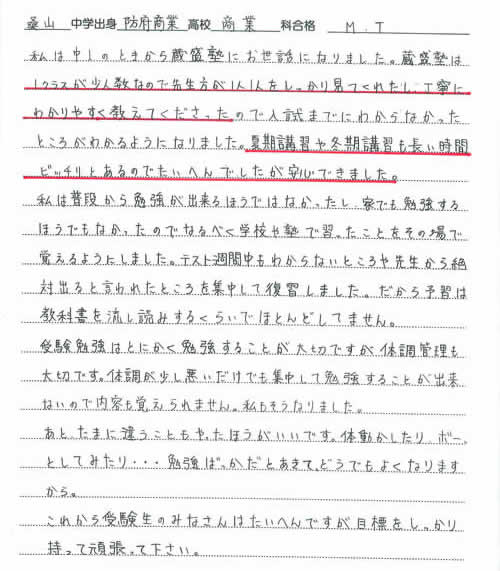 桑山 中学出身 防府商業 高校 商業 科合格 M.T
私は中1のときから蔵盛塾にお世話になりました。蔵盛塾は
1クラスが少人数なので先生方が1人1人をしっかり見てくれたし、丁寧に
わかりやすく教えてくださったので入試までにわからなかった
ところがわかるようになりました。夏期講習や冬期講習も長い時間
ビッチリとあるのでたいへんでしたが安心できました。
私は普段から勉強が出来るほうではなかったし、家でも勉強する
ほうでもなかったのでなるべく学校や塾で習ったことをその場で
覚えるようにしました。テスト週間中もわからないところや先生から絶
対出ると言われたところを集中して復習しました。だから予習は
教科書を流し読みするくらいでほとんどしてません。
受験勉強はとにかく勉強することが大切ですが、体調管理も
大切です。体調が少し悪いだけでも集中して勉強することが出来
ないので内容も覚えられません。私もそうなりました。
あと、たまに違うこともやったほうがいいです。体動かしたり、ボーッ
としてみたり・・・勉強ばっかだとあきて、どうでもよくなります
から。
これから受験生のみなさんはたいへんですが目標をしっかり
持って頑張って下さい。